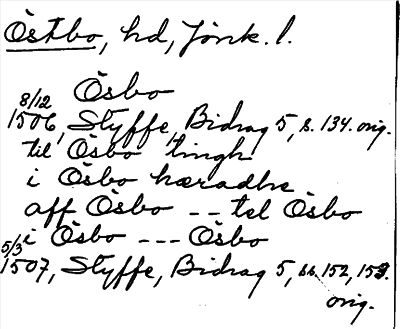 Östbo, hd, Jönk. l.
Ösbo
8/12
1506, Styffe, Bidrag 5, s. 134. orig.
til Ösbo tingh
i Ösbo hæradhe
aff Ösbo -- tel Ösbo
i Ösbo --- Ösbo
5/3
1507, Styffe, Bidrag 5, ss. 152, 153.
orig.